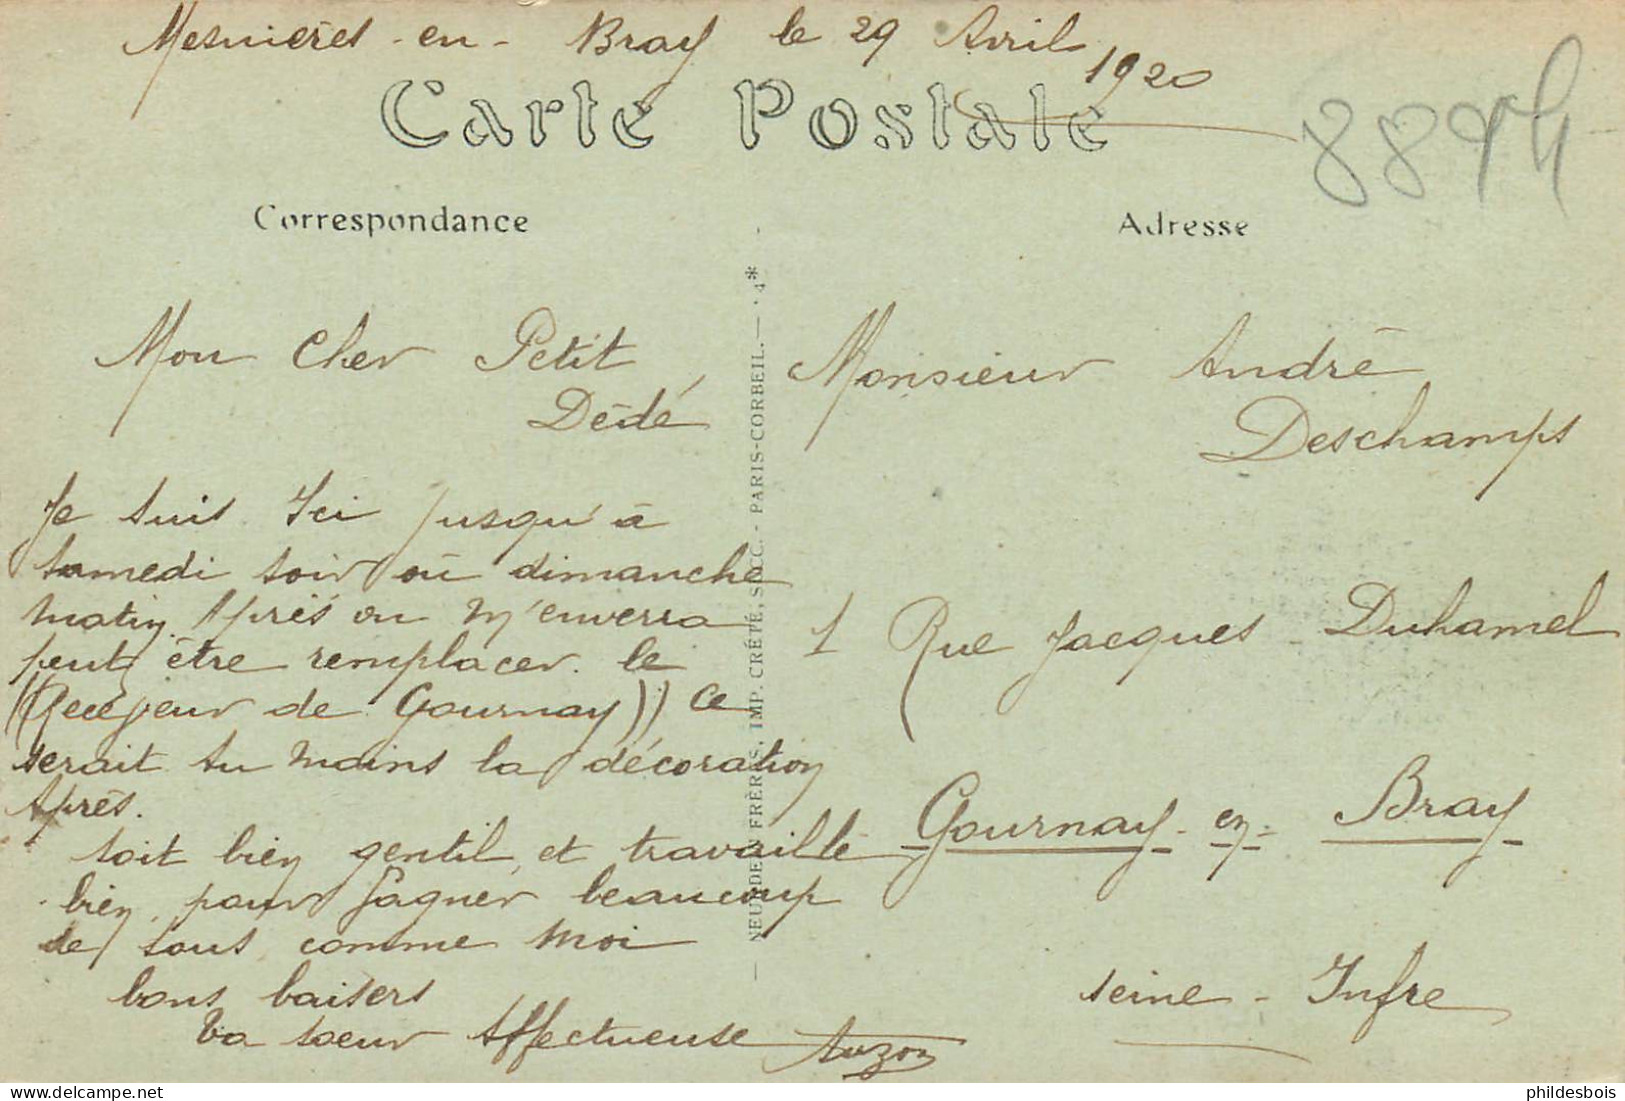 Mesnières-en-Bray le 29 Avril
1920
Carte Postale
Correspondance
Adresse
Mon Cher Petit
Dédé
Je suis Ici jusqu'à
samedi soir où dimanche
matin. Après on m'enverra
peut être remplacer le
((Receveur de Gournay)) ce
serait au moins la décoration
Après.
soit bien gentil et travaille
bien, pour gagner beaucoup
de sous comme moi
bons baisers
ta soeur Affectueuse
NEURDEIN FRÈRES, IMP. CRÉTÉ, SUCC. - PARIS-CORBEIL. — · 4*
Monsieur André
Deschamps
1 Rue Jacques Duhamel
Gournay-en-Bray
seine-Infre
phildesbois